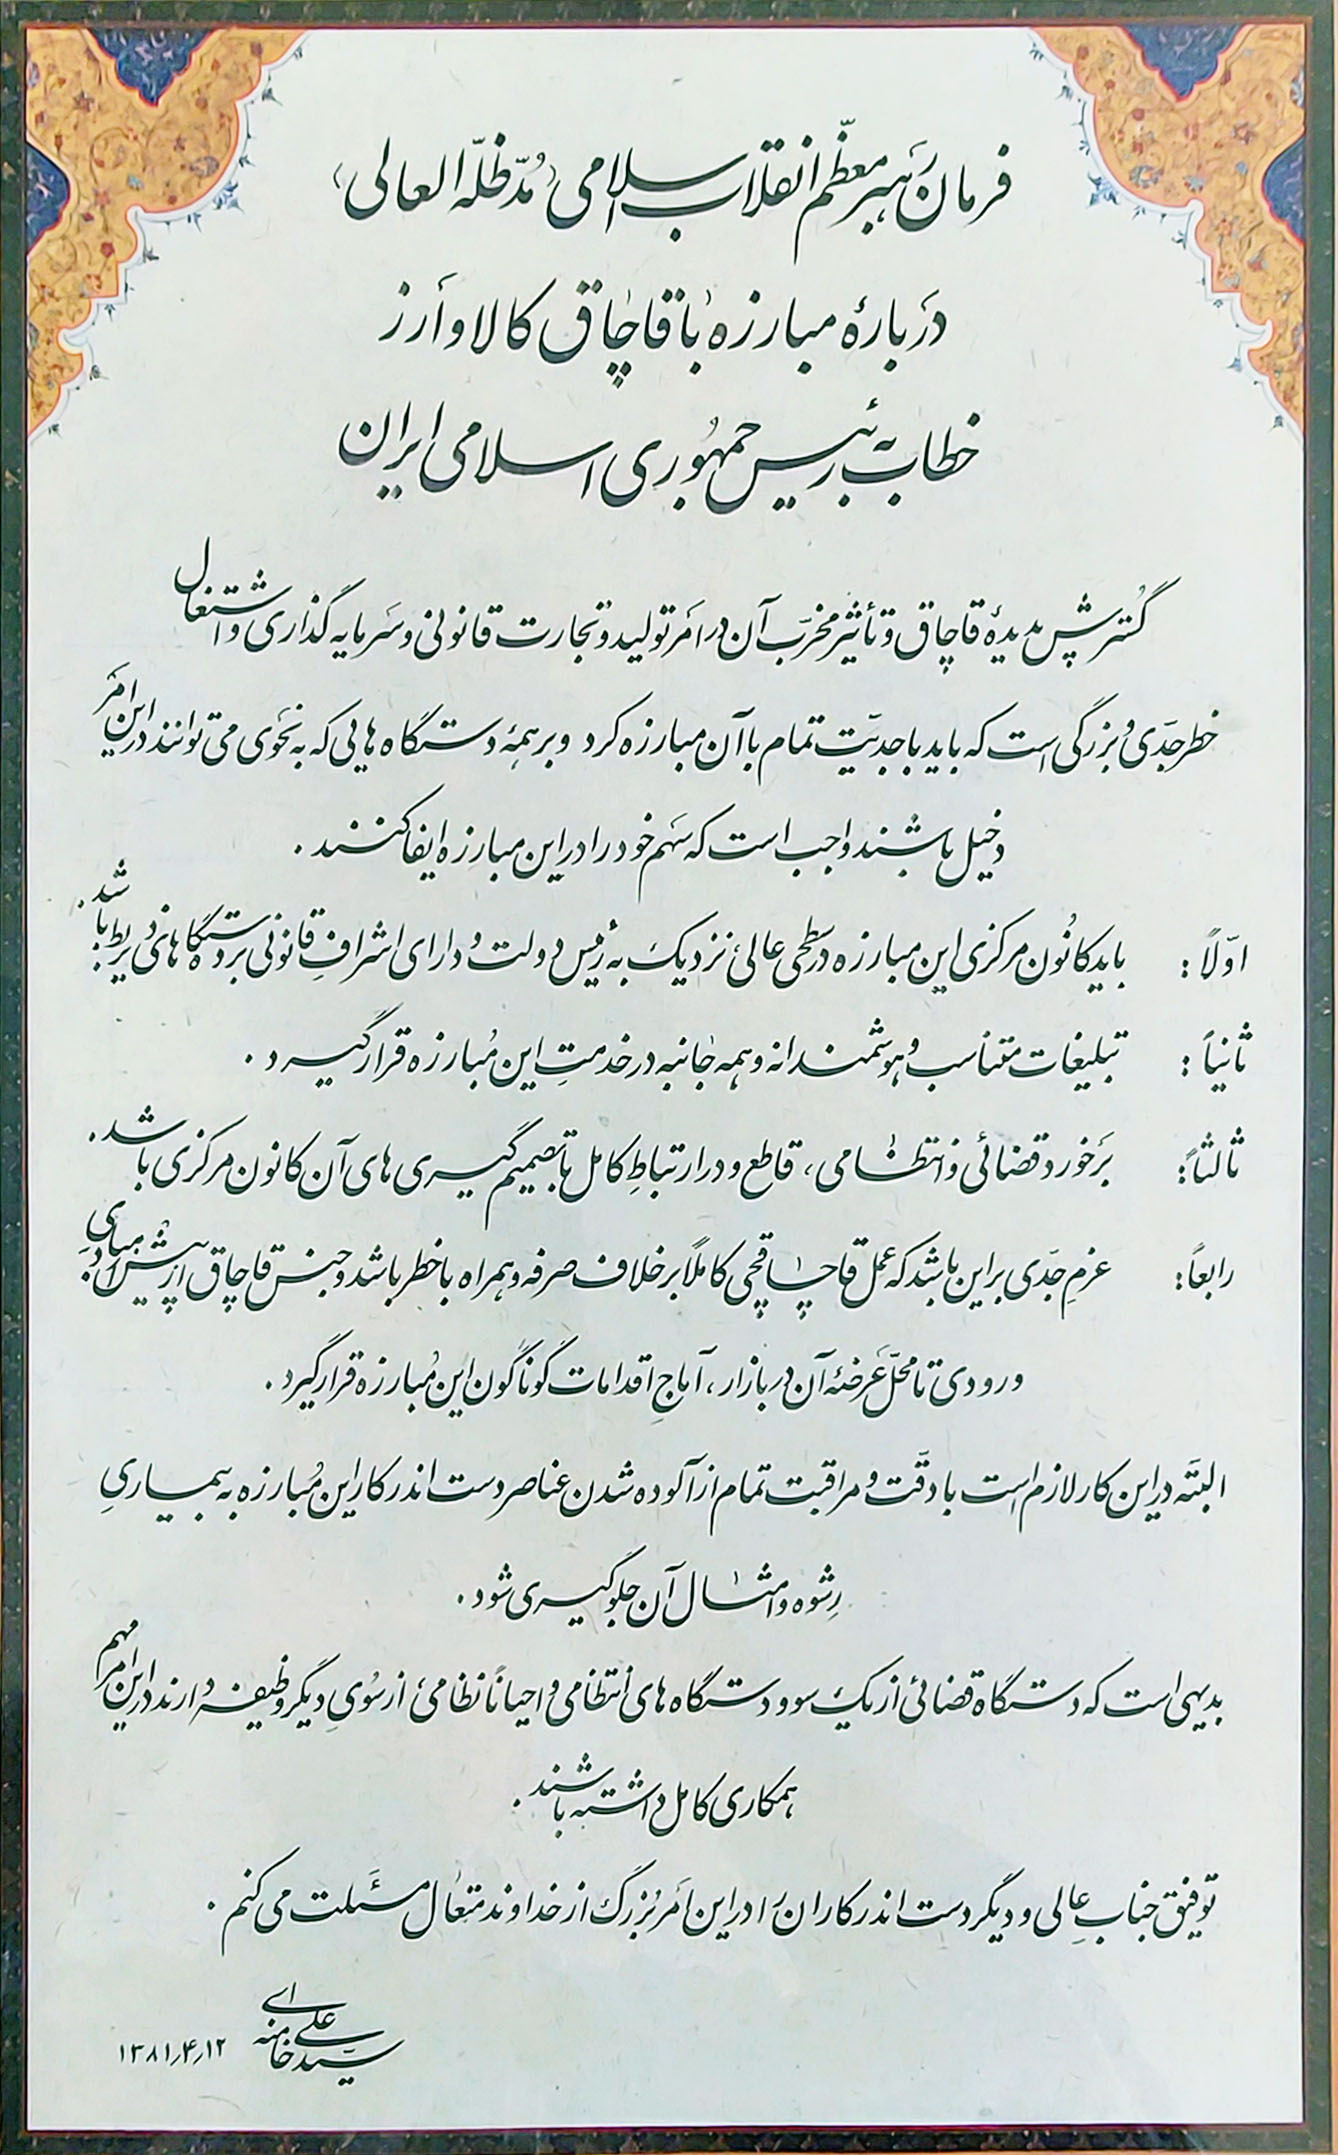 فرمان رهبر معظّم انقلاب اسلامی (مُدّ ظلّه العالی)
دربارهٔ مبارزه با قاچاق کالا و ارز
خطاب به رئیس جمهوری اسلامی ایران
گسترش پدیدهٔ قاچاق و تأثیر مخرّب آن در امر تولید و تجارت قانونی و سرمایه گذاری و اشتغال
خطر جدّی و بزرگی است که باید با جدیّت تمام با آن مبارزه کرد و بر همهٔ دستگاه هایی که به نحوی می توانند در این امر
دخیل باشند واجب است که سهم خود را در این مبارزه ایفا کنند .
اوّلاً : باید کانون مرکزی این مبارزه در سطحی عالی نزدیک به رئیس دولت و دارای اشراف قانونی بر دستگاه های ذیربط باشد .
ثانیاً : تبلیغات متناسب و هوشمندانه و همه جانبه در خدمتِ این مُبارزه قرار گیرد .
ثالثاً : برخورد قضائی و انتظامی ، قاطع و در ارتباطِ کامل با تصمیم گیری های آن کانون مرکزی باشد .
رابعاً : عزمِ جدّی بر این باشد که عمل قاچاقچی کاملاً بر خلاف صرفه و همراه با خطر باشد و جنس قاچاق از پیش از مبادیِ
ورودی تا محلّ عرضهٔ آن در بازار ، آماجِ اقدامات گوناگون این مُبارزه قرار گیرد .
البتّه در این کار لازم است با دقّت و مراقبت تمام از آلوده شدن عناصر دست اندر کار این مُبارزه به بیماریِ
رشوه و امثال آن جلوگیری شود .
بدیهی است که دستگاه قضائی از یک سو و دستگاه های انتظامی و احیاناً نظامی از سُویِ دیگر وظیفه دارند در این امر مهم
همکاری کامل داشته باشند .
توفیق جناب عالی و دیگر دست اندر کاران را در این امر بُزرگ از خداوند متعال مسئلت می کنم .
سیّد علی خامنه ای
۱۳۸۱٫۴٫۱۲